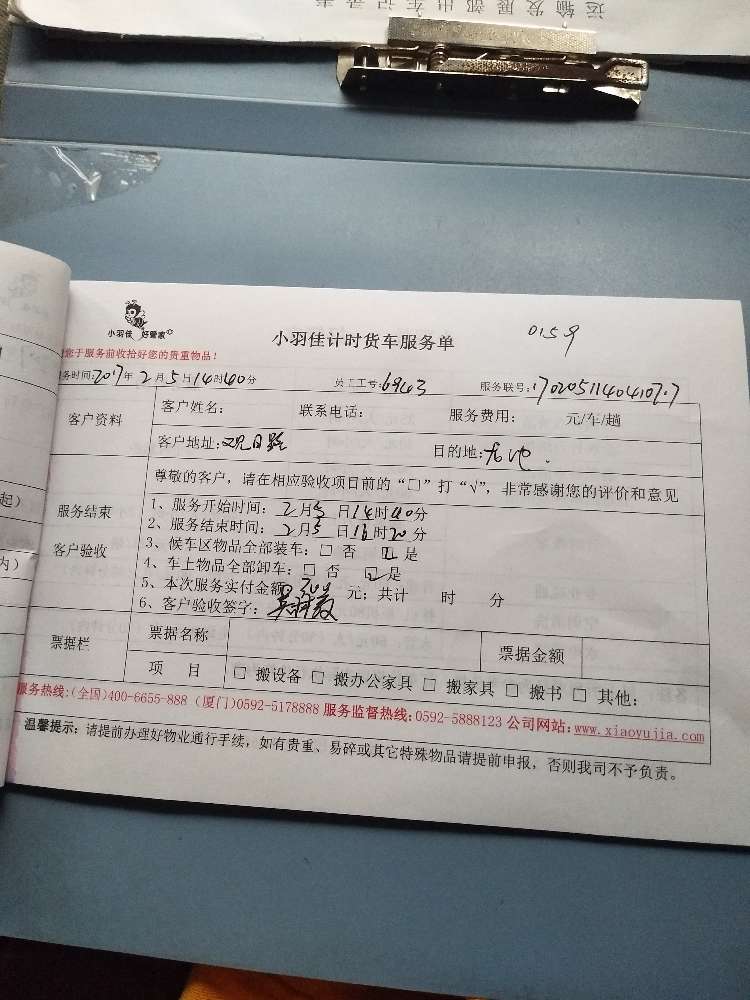 运输发展部出车记录表
小羽佳 好管家
小羽佳计时货车服务单
0159
您于服务前收拾好您的贵重物品！
务时间:2017年2月5日14时40分 员工工号:6943 服务联号:
客户资料 客户姓名: 联系电话: 服务费用: 元/车/趟
客户地址:观日路 目的地:
尊敬的客户，请在相应验收项目前的“□”打“√”，非常感谢您的评价和意见
服务结束
客户验收
1、服务开始时间: 2月5日14时40分
2、服务结束时间: 2月5日16时20分
3、候车区物品全部装车: □ 否 ☑是
4、车上物品全部卸车: □ 否 ☑是
5、本次服务实付金额: 200 元; 共计 时 分
6、客户验收签字:
票据栏 票据名称 票据金额
项 目 □ 搬设备 □ 搬办公家具 □ 搬家具 □ 搬书 □ 其他:
服务热线:(全国)400-6655-888 (厦门)0592-5178888 服务监督热线:0592-5888123 公司网站:www.xiaoyujia.com
温馨提示: 请提前办理好物业通行手续，如有贵重、易碎或其它特殊物品请提前申报，否则我司不予负责。
起）
内）